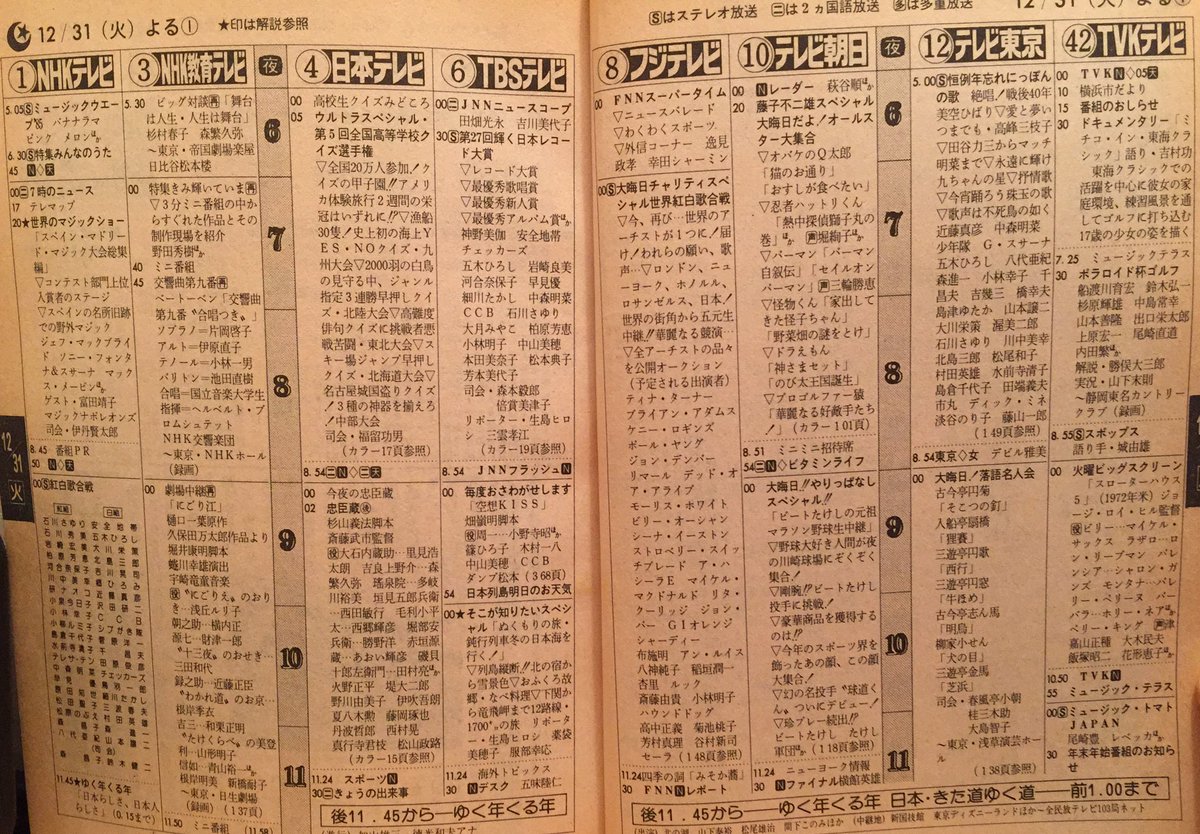 12/31（火）よる① ★印は解説参照
Ⓢはステレオ放送 ㊁は2ヵ国語放送 多は多重放送
12/31（火）よる①
①NHKテレビ
5.05Ⓢミュージックウエーブ'85 バナナラマ
ピンク メロンほか
6.30Ⓢ特集みんなのうた
45 N◇天
00㊁7時のニュース
17 テレマップ
20★世界のマジックショー
「スペイン・マドリード・マジック大会総集編」
▽コンテスト部門上位入賞者のステージ
▽スペインの名所旧跡での野外マジック
ジェフ・マックブライド ソニー・フォンタナ&スサーナ マックス・メービンほか
ゲスト・富田靖子
マジックナポレオンズ
司会・伊丹賢太郎
8.45 番組PR
50 N◇天
00Ⓢ紅白歌合戦
紅組 白組
11.45★ゆく年くる年
「日本らしさ、日本人らしさ」(0.15まで)
③NHK教育テレビ
5.30 ビッグ対談再「舞台は人生・人生は舞台」
杉村春子 森繁久弥
～東京・帝国劇場楽屋
日比谷松本楼
00 特集きみ輝いています再
▽3分ミニ番組の中からすぐれた作品とその制作現場を紹介
野田秀樹ほか
40 ミニ番組
45 交響曲第九番再
ベートーベン「交響曲第九番“合唱つき”」
ソプラノ＝片岡啓子
アルト＝伊原直子
テノール＝小林一男
バリトン＝池田直樹
合唱＝国立音楽大学生
指揮＝ヘルベルト・ブロムシュテット
NHK交響楽団
～東京・NHKホール
（録画）
00 劇場中継再
「にごり江」
樋口一葉原作
久保田万太郎作品より
堀井康明脚本
蜷川幸雄演出
宇崎竜童音楽
役“にごりえ”のおりき…浅丘ルリ子
朝之助…横内正
源七…財津一郎
“十三夜”のおせき…三田和代
録之助…近藤正臣
“わかれ道”のお京…根岸季衣
吉三…和栗正明
“たけくらべ”の美登利…山形明子
信如…青山裕一ほか
根岸明美 新橋耐子
～東京・日生劇場
（録画）（137頁）
11.50 ミニ番組 (11.58)
④日本テレビ
00 高校生クイズみどころ
05 ウルトラスペシャル・第5回全国高等学校クイズ選手権
▽全国20万人参加！クイズの甲子園!!アメリカ体験旅行2週間の栄冠はいずれに!!▽漁船30隻！史上初の海上YES・NOクイズ・九州大会▽2000羽の白鳥の見守る中、ジャンル指定3連勝早押しクイズ・北陸大会▽高難度俳句クイズに挑戦者悪戦苦闘・東北大会▽スキー場ジャンプ早押しクイズ・北海道大会▽名古屋城国盗りクイズ！3種の神器を揃えろ！中部大会
司会・福留功男
（カラー17頁参照）
8.54㊁N◇㊁天
00 今夜の忠臣蔵
02 忠臣蔵後
杉山義法脚本
斎藤武市監督
役大石内蔵助…里見浩太朗 吉良上野介…森繁久弥 瑤泉院…多岐川裕美 垣見五郎兵衛…西田敏行 毛利小平太…西郷輝彦 堀部安兵衛…勝野洋 赤垣源蔵…あおい輝彦 磯貝十郎左衛門…田村亮ほか
火野正平 堤大二郎
野川由美子 伊吹吾朗
夏八木勲 藤岡琢也
丹波哲郎 西村晃
真行寺君枝 松山政路
（カラー15頁参照）
11.24 スポーツN
30㊁きょうの出来事
⑥TBSテレビ
00㊁JNNニュースコープ
田畑光永 吉川美代子
30Ⓢ第27回輝く日本レコード大賞
▽レコード大賞
▽最優秀歌唱賞
▽最優秀新人賞
▽最優秀アルバム賞ほか
神野美伽 安全地帯
チェッカーズ
五木ひろし 岩崎良美
河合奈保子 早見優
細川たかし 中森明菜
CCB 石川さゆり
大月みやこ 柏原芳恵
小林明子 中山美穂
本田美奈子 松本典子
芳本美代子
司会・森本毅郎
倍賞美津子
リポーター・生島ヒロシ 三雲孝江
（カラー19頁参照）
8.54 JNNフラッシュN
00 毎度おさわがせします
「空想KISS」
畑嶺明脚本
役周一…小野寺昭ほか
篠ひろ子 木村一八
中山美穂 CCB
ダンプ松本（368頁）
54 日本列島明日のお天気
00★そこが知りたいスペシャル「ぬくもりの旅・鈍行列車冬の日本海を行く！」
▽列島縦断!!北の宿から雪景色▽おふくろ故郷・なべ料理▽下関から竜飛岬まで12路線・1700㌔の旅 リポーター・生島ヒロシ 薬袋美穂子 服部幸応
11.24 海外トピックス
30 Nデスク 五味陸仁
後11.45から――ゆく年くる年
⑧フジテレビ
00 FNNスーパータイム
▽ニュースパレード
▽わくわくスポーツ
▽外信コーナー 逸見政孝 幸田シャーミン
00Ⓢ大晦日チャリティスペシャル世界紅白歌合戦
▽今、再び…世界のアーチストが1つに！届け！われらの願い、歌声…▽ロンドン、ニューヨーク、ホノルル、ロサンゼルス、日本！世界の街角から五元生中継!!華麗なる競演…
▽全アーチストの品々を公開オークション
（予定される出演者）
ティナ・ターナー
ブライアン・アダムス
ケニー・ロギンズ
ポール・ヤング
ジョン・デンバー
リマール デッド・オア・アライブ
モーリス・ホワイト
ビリー・オーシャン
シーナ・イーストン
ストロベリー・スイッチブレード ア・ハ
シーラE マイケル・マクドナルド リタ・クーリッジ ジョン・パー GIオレンジ
シャーディー
布施明 アン・ルイス
八神純子 稲垣潤一
杏里 ルック
斎藤由貴 小林明子
ハウンドドッグ
高中正義 菊池桃子
芳村真理 谷村新司
セーラ（148頁参照）
11.24四季の詞「みそか蕎」
30 FNNNレポート
⑩テレビ朝日
00 Nレーダー 萩谷順ほか
20 藤子不二雄スペシャル
大晦日だよ！オールスター大集合
▽オバケのQ太郎
「猫のお通り」
「おすしが食べたい」
▽忍者ハットリくん
「熱中探偵獅子丸の巻」ほか 声堀絢子ほか
▽パーマン「パーマン自叙伝」「セイルオンパーマン」声三輪勝恵
▽怪物くん「家出してきた怪子ちゃん」
「野菜畑の謎をとけ」
▽ドラえもん
「神さまセット」
「のび太王国誕生」
▽プロゴルファー猿
「華麗なる好敵手たち」（カラー101頁）
8.51 ミニミニ招待席
54㊁N◇ビタミンライフ
00 大晦日!!やりっぱなしスペシャル!!
「ビートたけしの元祖マラソン野球生中継」
▽野球大好き人間が夜の川崎球場にぞくぞく集合！
▽剛腕!!ビートたけし投手に挑戦！
▽豪華商品を獲得するのは!!
▽今年のスポーツ界を飾ったあの顔、この顔大集合！
▽幻の名投手“球道くん”ついにデビュー！
▽珍プレー続出!!
ビートたけし たけし軍団ほか（118頁参照）
11.24 ニューヨーク情報
30 Nファイナル横館英雄
⑫テレビ東京
5.00Ⓢ恒例年忘れにっぽんの歌 絶唱！戦後40年
美空ひばり▽愛と夢いつまでも・高峰三枝子
▽田谷力三からマッチ明菜まで▽永遠に輝け九ちゃんの星▽抒情歌
▽今宵踊ろう珠玉の歌
▽歌声は不死鳥の如く
近藤真彦 中森明菜
少年隊 G・スサーナ
五木ひろし 八代亜紀
森進一 小林幸子 千昌夫 吉幾三 橋幸夫
島津ゆたか 山本譲二
大川栄策 渥美二郎
石川さゆり 川中美幸
北島三郎 松尾和子
村田英雄 水前寺清子
島倉千代子 田端義夫
市丸 ディック・ミネ
淡谷のり子 藤山一郎
（149頁参照）
8.54東京◇女 デビル雅美
00 大晦日！落語名人会
古今亭円菊
「そこつの釘」
入船亭扇橋
「狸賽」
三遊亭円歌
「西行」
三遊亭円窓
「牛ほめ」
古今亭志ん馬
「明烏」
柳家小せん
「犬の目」
三遊亭金馬
「芝浜」
司会・春風亭小朝
桂三木助
大島智子
～東京・浅草演芸ホール
（138頁参照）
㊷TVKテレビ
00 TVKN◇05天
10 横浜市だより
15 番組のおしらせ
30 ドキュメンタリー「ミチコ・イン・東海クラシック」語り・吉村功
東海クラシックでの活躍を中心に彼女の家庭環境、練習風景を通してゴルフに打ち込む17歳の少女の姿を描く
7.25 ミュージックテラス
30 ポラロイド杯ゴルフ
船渡川育宏 鈴木弘一
杉原輝雄 中島常幸
山本善隆 出口栄太郎
上原宏一 尾崎直道
内田繁ほか
解説・勝俣大三郎
実況・山下末則
～静岡東名カントリークラブ（録画）
8.55Ⓢスポップス
語り手・城由雄
00 火曜ビッグスクリーン
「スローターハウス5」（1972年米）ジョージ・ロイ・ヒル監督
役ビリー…マイケル・サックス ラザロ…ロン・リーブマン バレンシア…シャロン・ガンズ モンタナ…バレリー・ペリーヌ バーバラ…ホリー・ネアほか
ペリー・キング 声津嘉山正種 大木民夫
飯塚昭二 花形恵子ほか
10.50 TVKN
55 ミュージック・テラス
00Ⓢミュージック・トマトJAPAN
尾崎豊 レベッカほか
30 年末年始番組のお知らせ
後11.45から――ゆく年くる年 日本・きた道ゆく道――前1.00まで
夜
6
7
8
9
10
11
12/31
火